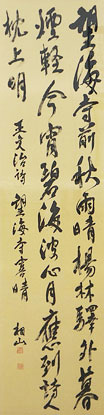 望海寺前秋雨晴楊林驛外暮
煙輕今宵碧海波心月應到詩人
枕上明
王元治詩望海寺霽晴
相山